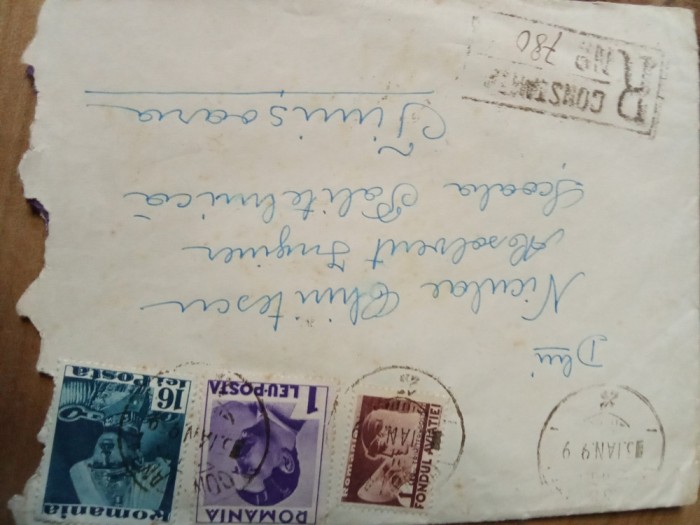 Dlui
Niculae Chintescu
Absolvent Inginer
Școala Politehnică
Timișoara
R
CONSTANȚA
No 780
FONDUL AVIAȚIEI
ROMANIA
1 LEU-POSTA
Romania
16 lei Posta
JAN. 9